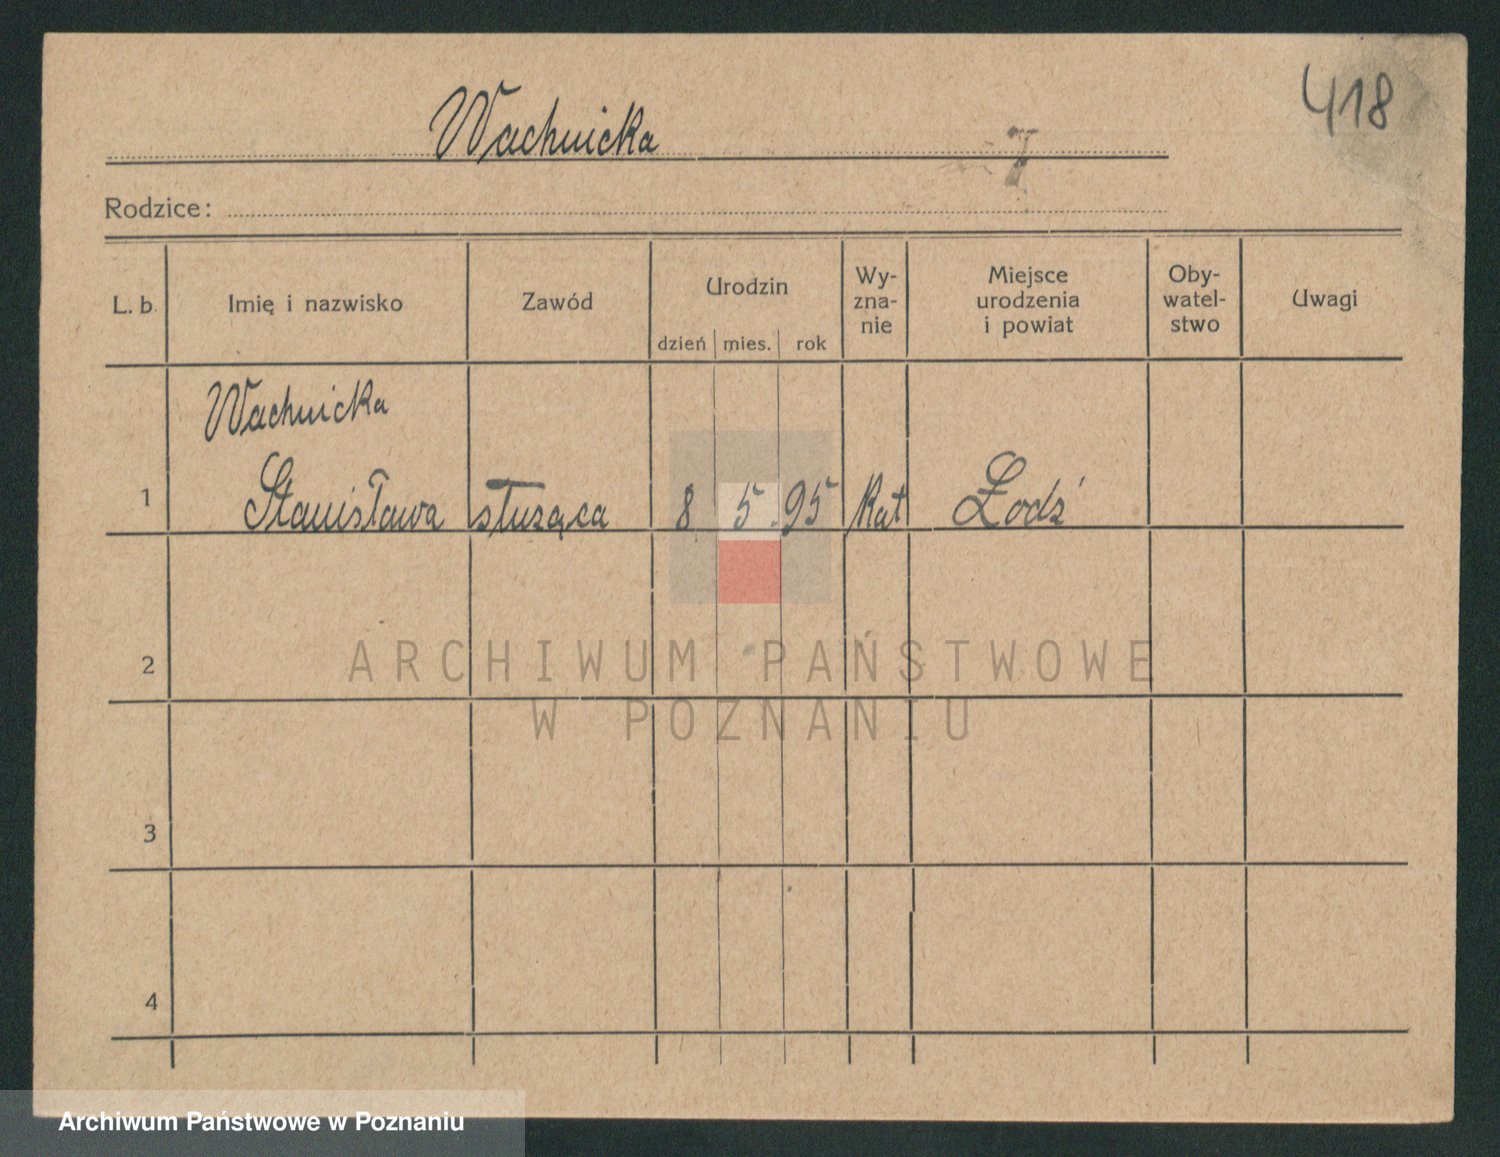 418
Wachnicka
7
Rodzice:
L. b.
Imię i nazwisko
Zawód
Urodzin
dzień mies. rok
Wy-
zna-
nie
Miejsce
urodzenia
i powiat
Oby-
watel-
stwo
Uwagi
Wachnicka
1 Stanisława służąca 8 5. 95 Kat Łodź
2
3
4
ARCHIWUM PAŃSTWOWE
W POZNANIU
Archiwum Państwowe w Poznaniu